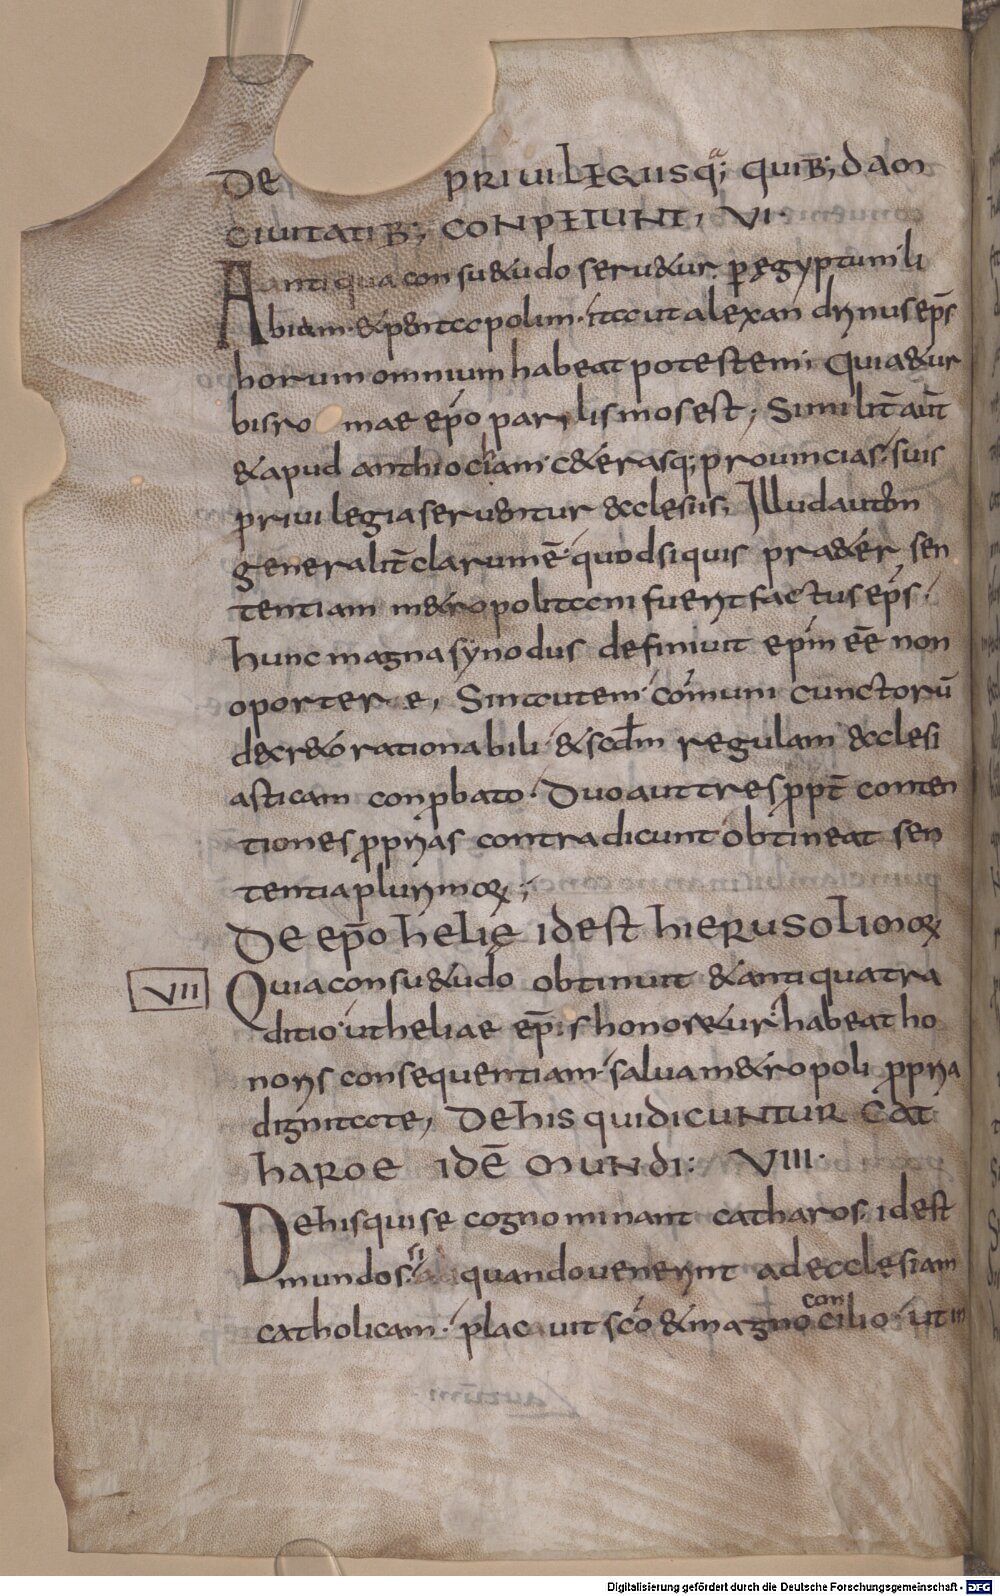 DE PRIUILEGIISQ; QUIB; DAM
CIUITATIB; CONPETUNT, VI.
Antiqua consu&udo seru&ur. p̱ ęgyptum li
biam. & pentapolim. ita ut alexandrinus ep̄s
horum omnium habeat potestem; Quia & ur
bis romae ep̄o parilis mos est; Similit̄ aut̄
& apud anthiochiam c&erasq; prouincias. suis
priuilegia seruentur &cclesiis, Illud autem
generalit̄ clarum ē quod siquis pra&er sen
tentiam m&ropolitani fuerit factus ep̄s.
hunc magna synodus definiuit ep̄m ēē non
oportere, Sin autem cōmuni cunctorū
decr&o rationabili & scd̄m regulam &cclesi
asticam conp̱bato. Duo aut tres p̱pt̄ conten
tiones p̱prias contradicunt obtineat sen
tentia plurimoꝝ;
De ep̄o helię idest hierusolimoꝝ
VII Quia consu&udo obtinuit & antiqua tra
ditio ut heliae ep̄is honor&ur habeat ho
noris consequentiam. salua m&ropoli p̱pria
dignitate, De his qui dicuntur cat
haroe id ē mundi: VIII.
De his qui se cognominant catharos. idest
mundos. si quando uenerint ad ecclesiam
catholicam. placuit sc̄o & magno concilio. ut in
Digitalisierung gefördert durch die Deutsche Forschungsgemeinschaft - DFG